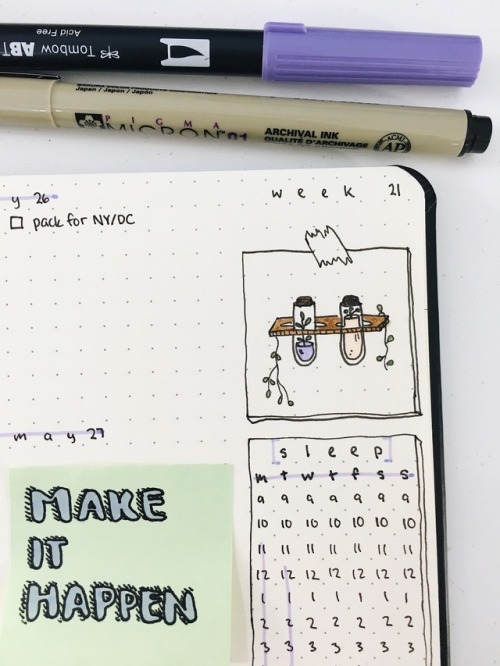 Acid Free
Tombow ABT
Japan / Japon / Japan
PIGMA
MICRON 01
ARCHIVAL INK
QUALITÉ D'ARCHIVAGE
ACMI
AP
week 21
y 26
pack for NY/DC
may 27
MAKE
IT
HAPPEN
sleep
m t w t f s s
9 9 9 9 9 9 9
10 10 10 10 10 10 10
11 11 11 11 11 11 11
12 12 12 12 12 12 12
1 1 1 1 1
2 2 2 2 2 2 2
3 3 3 3 3 3 3